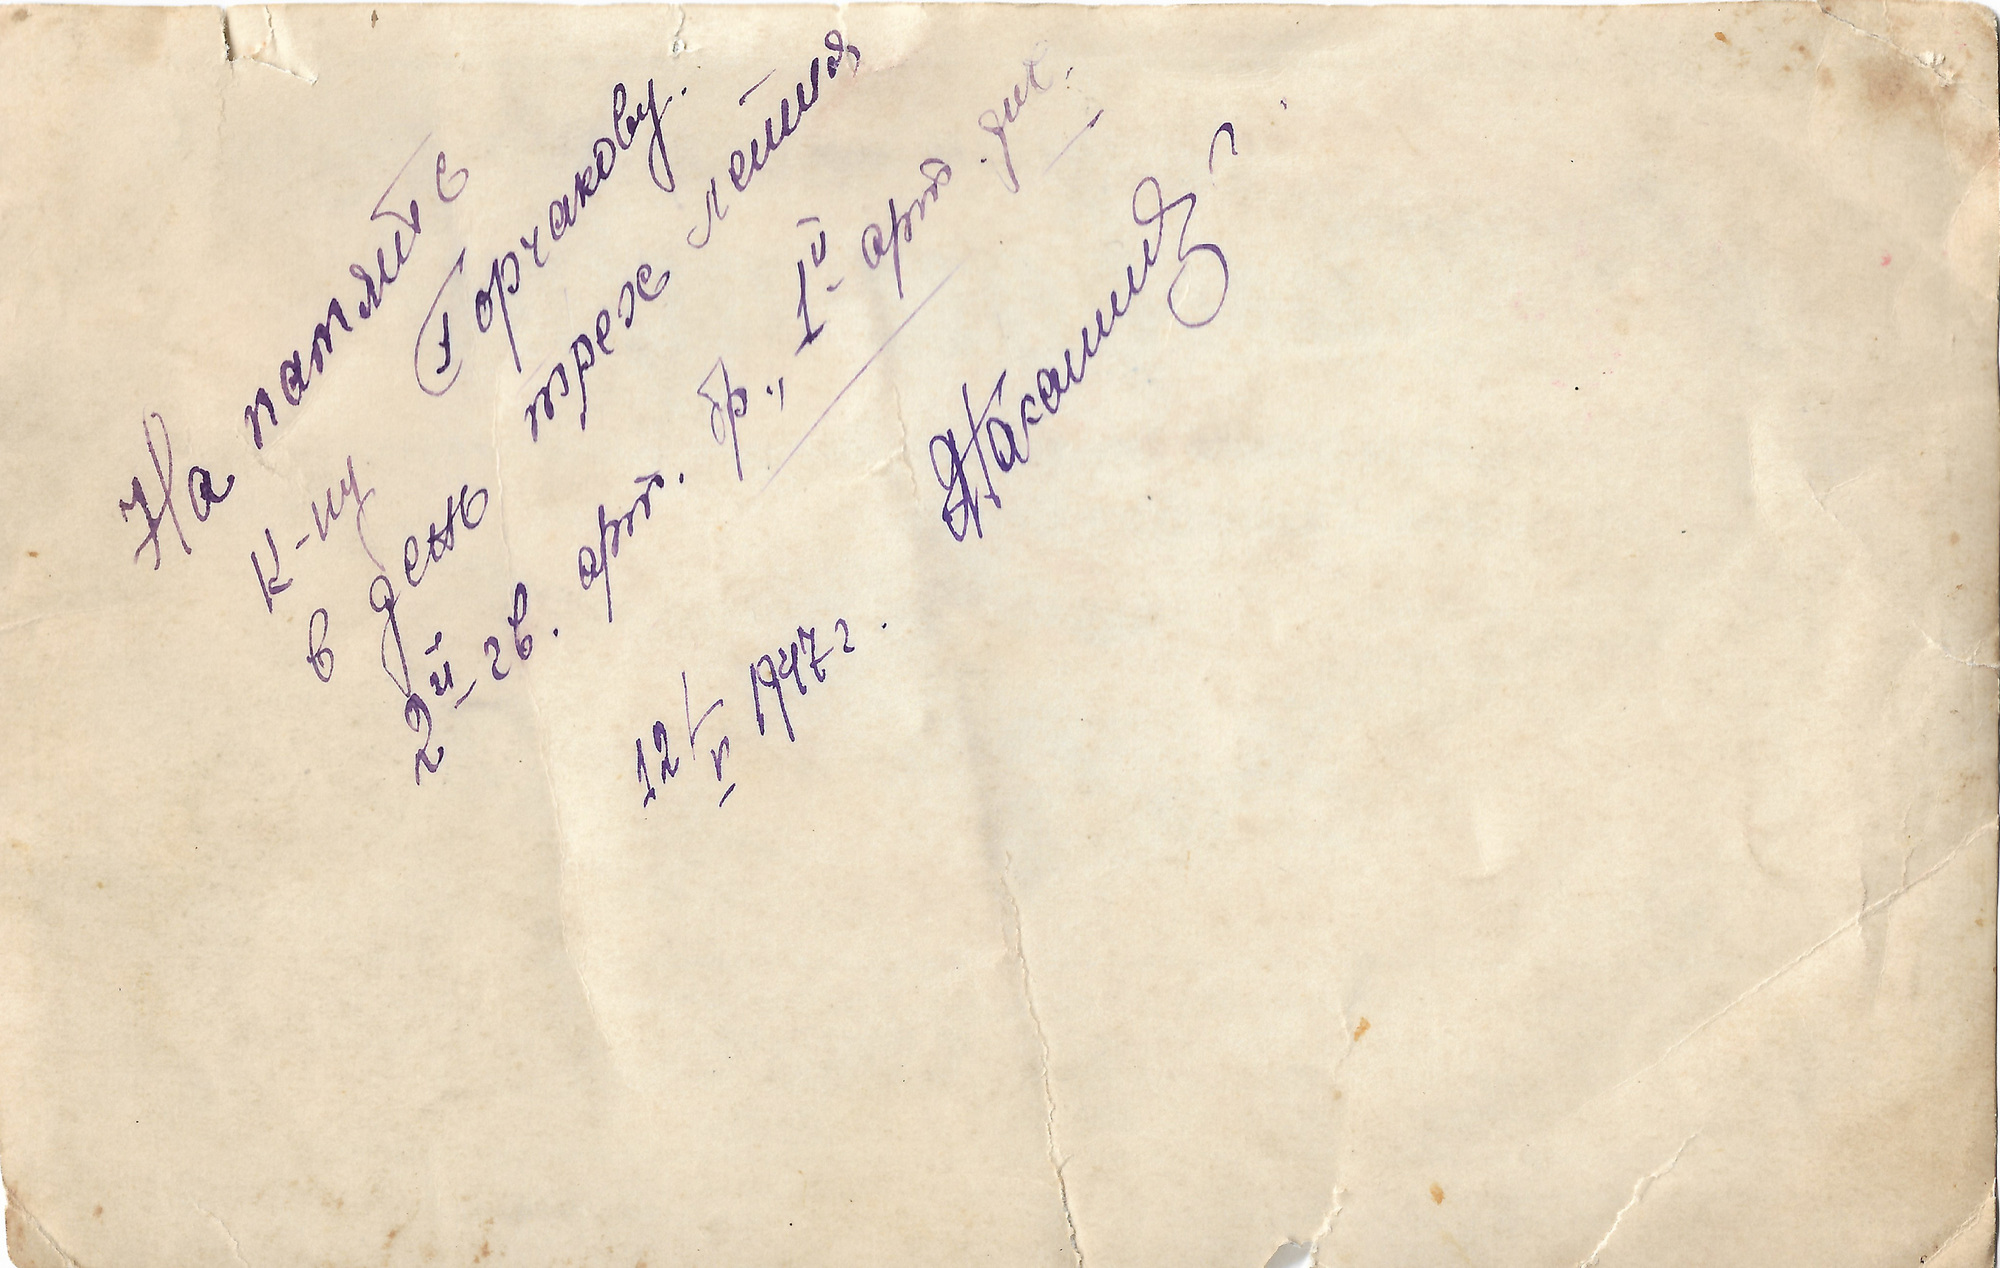 На память
к-ну Горчакову.
в день трех летия
2й гв. арт. бр., 1й арт. див.
12/V 1947 г.